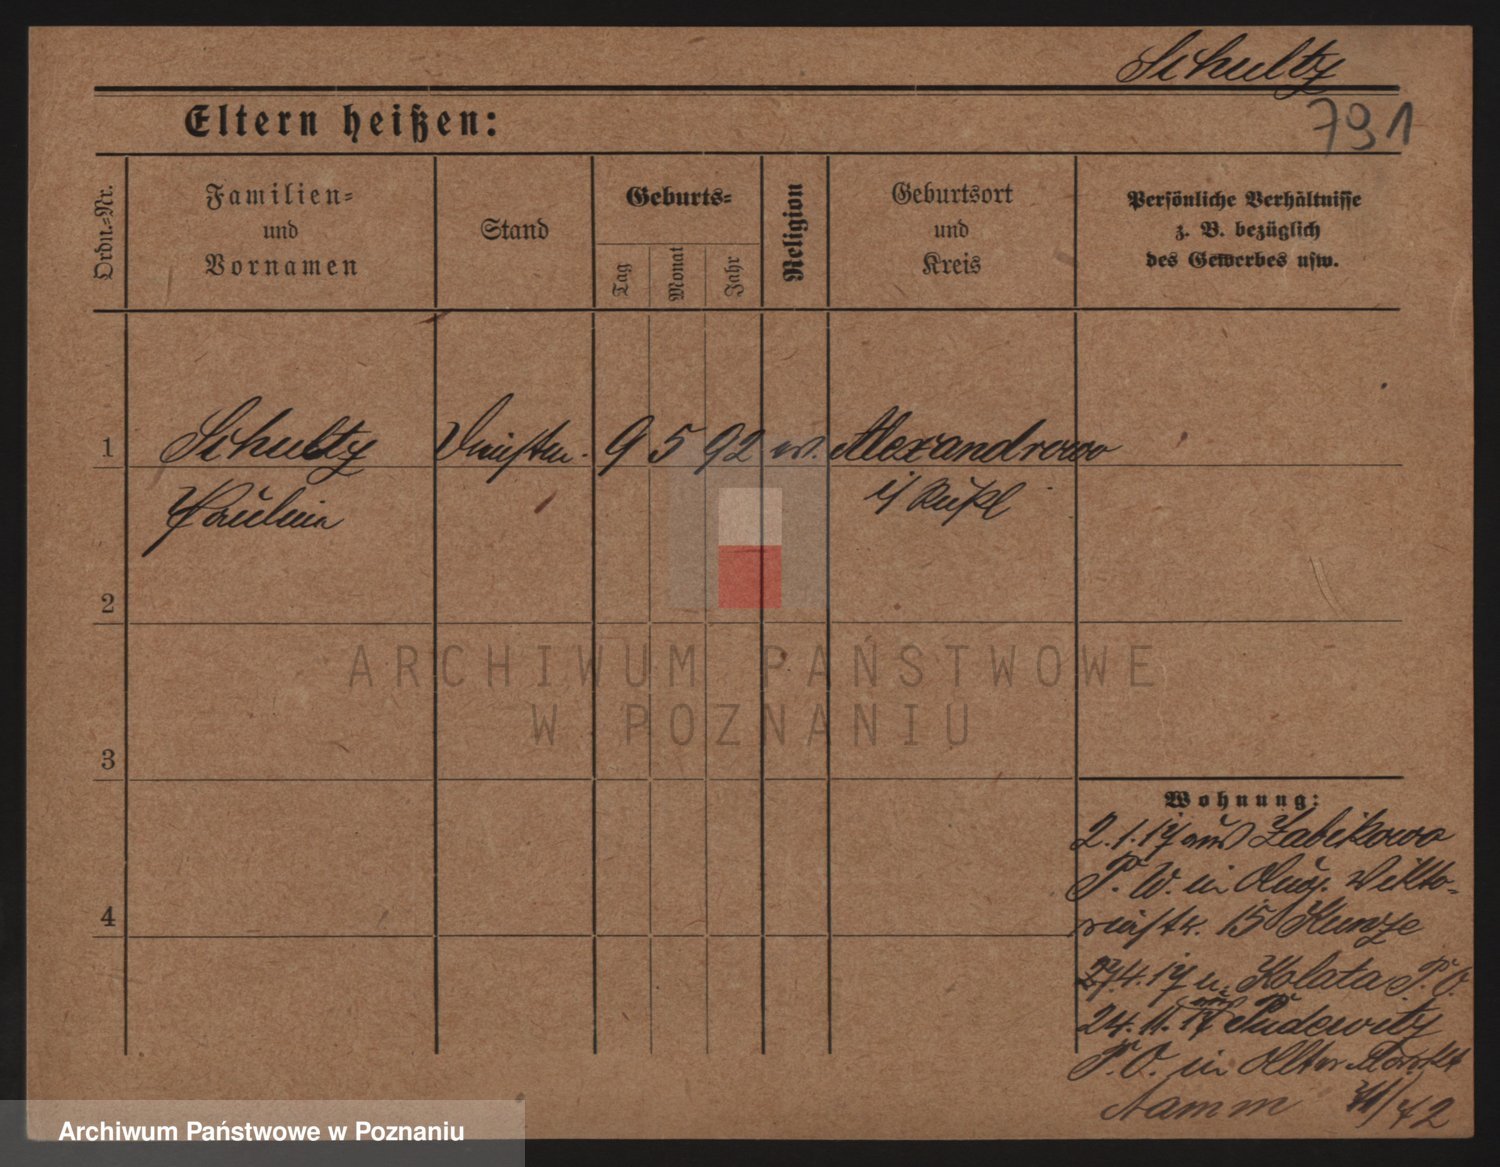 Schultz
791
Eltern heißen:
Ordn.-Nr.
Familien-
und
Vornamen
Stand
Geburts-
Tag
Monat
Jahr
Religion
Geburtsort
und
Kreis
Persönliche Verhältnisse
z. B. bezüglich
des Gewerbes usw.
1 Schultz 9 5 92 Alexandrowo
Paulina i/ Rußl
2
3
4
Wohnung:
2.1.17 aus Zabikowo
P. W. in Aug. Vikto-
riastr. 15 Kunze
27.4.17 n. Kolata P. O.
24.11.17 aus Pudewitz
P. O. in Alter Markt
Namm 42
ARCHIWUM PAŃSTWOWE
W POZNANIU
Archiwum Państwowe w Poznaniu